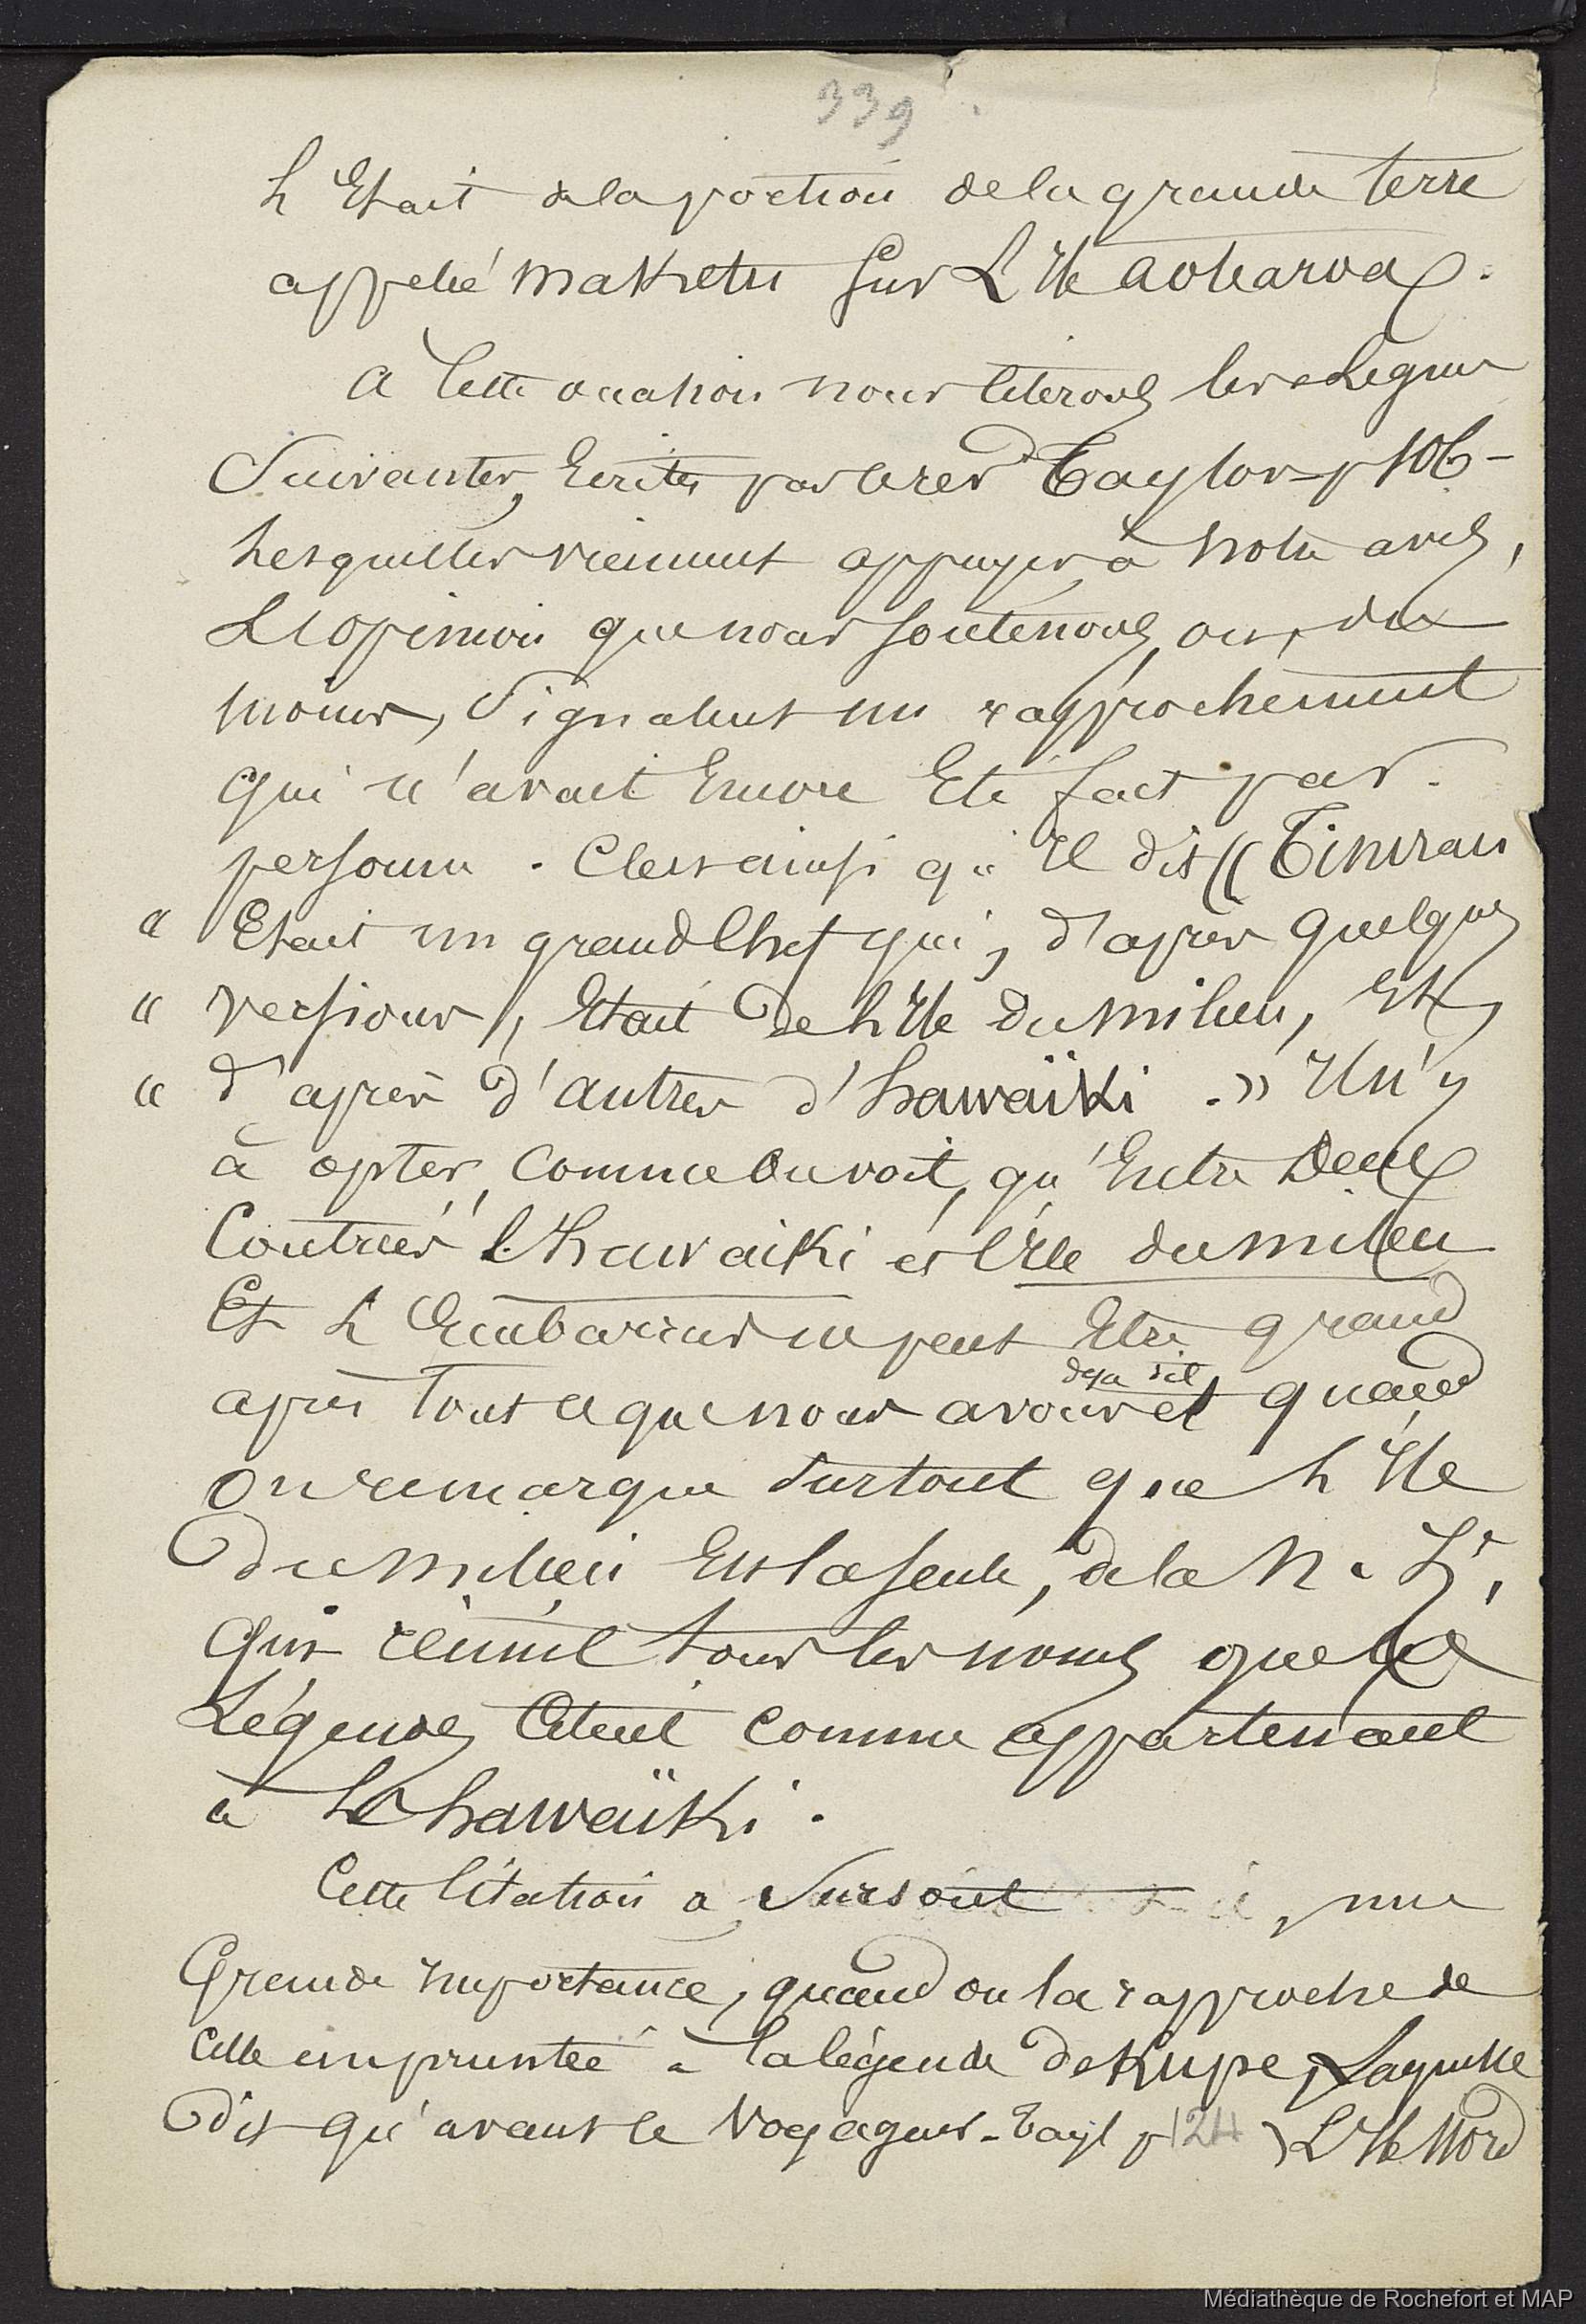 339
L'Etait de la portion de la grande terre
appelé Maketu sur L'Ile Aotearoa.
A cette occasion nous citerons les Lignes
Suivantes, Ecrites par le rev Taylor p 106 -
Lesquelles viennent appuyer, à notre avis,
L'opinion que nous soutenons, ou, du
moins, Signalent un rapprochement
qui n'avait Encore Eté fait par
personne. C'est ainsi qu'Il dit « Tinirau
" Etait un grand Chef qui, d'après quelques
" versions, Etait de L'Ile du milieu, Et,
" d'après d'autres d'hawaïki. » Il n'y
à opter, Comme On voit, qu'Entre Deux
Contrées L'hawaiki et l'Ile du milieu
Et L'Embarras ne peut Etre grand
après tout ce que nous avons déja dit et quand
On remarque Surtout que L'Ile
du milieu Est la seule, de la N. Z,
qui réunit tous les noms que les
Légendes Citent Comme appartenant
à L'hawaïki.
Cette Citation a Surtout, une
Grande Importance, quand on la rapproche de
Celle empruntée à la légende de Kupe, Laquelle
Dit qu'avant ce Voyageur - Tayl p 124 L'Ile Nord
Médiathèque de Rochefort et MAP